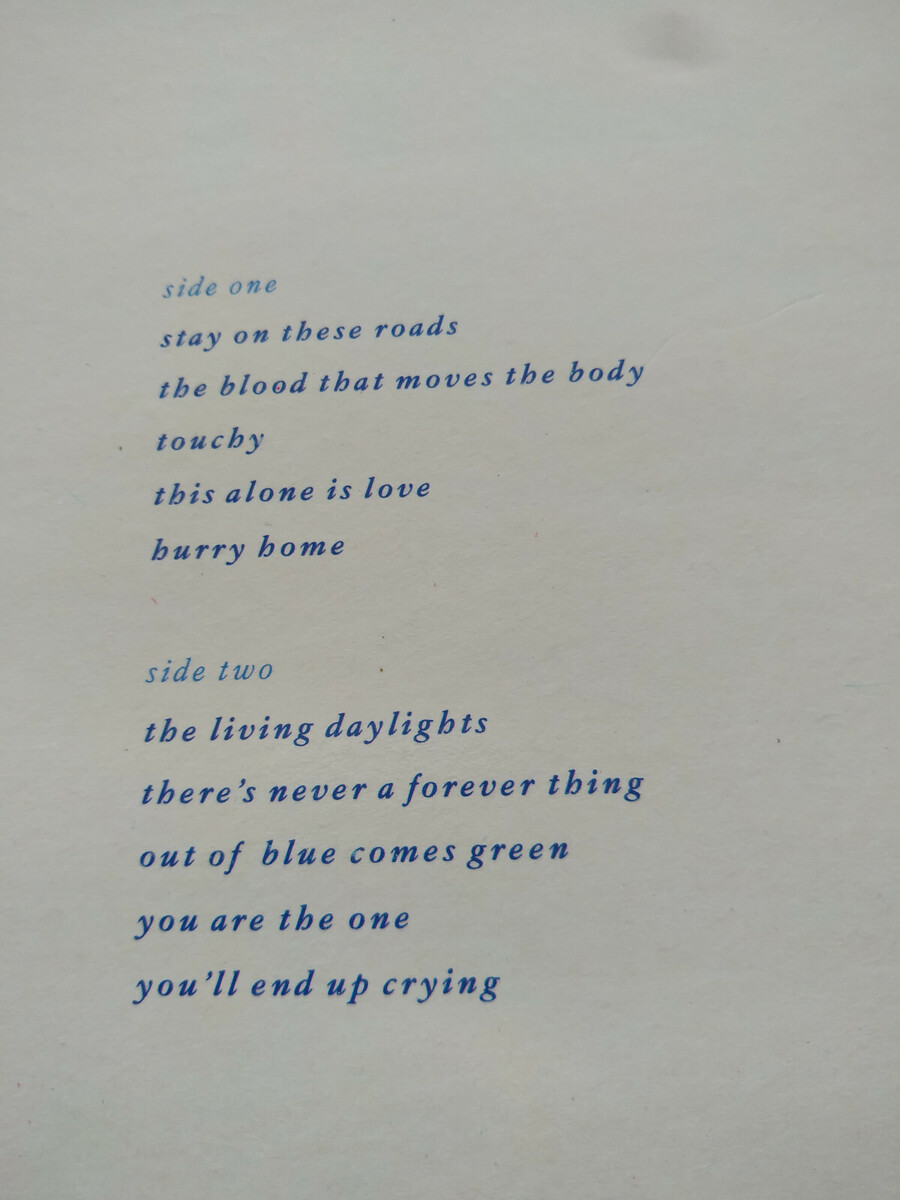 side one
stay on these roads
the blood that moves the body
touchy
this alone is love
hurry home
side two
the living daylights
there's never a forever thing
out of blue comes green
you are the one
you'll end up crying